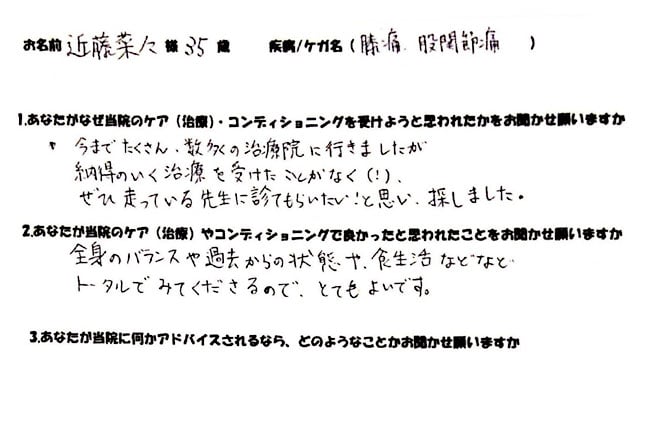 お名前 近藤菜々 様 35 歳 疾病/ケガ名 ( 膝痛、股関節痛 )
1.あなたがなぜ当院のケア（治療）・コンディショニングを受けようと思われたかをお聞かせ願いますか
今までたくさん、数多くの治療院に行きましたが
納得のいく治療を受けたことがなく（！）、
ぜひ走っている先生に診てもらいたい！と思い、探しました。
2.あなたが当院のケア（治療）やコンディショニングで良かったと思われたことをお聞かせ願いますか
全身のバランスや過去からの状態や、食生活などなど
トータルでみてくださるので、とてもよいです。
3.あなたが当院に何かアドバイスされるなら、どのようなことかお聞かせ願いますか